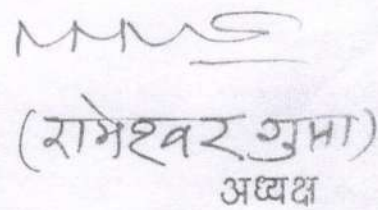 (रामेश्वर गुप्ता)
अध्यक्ष